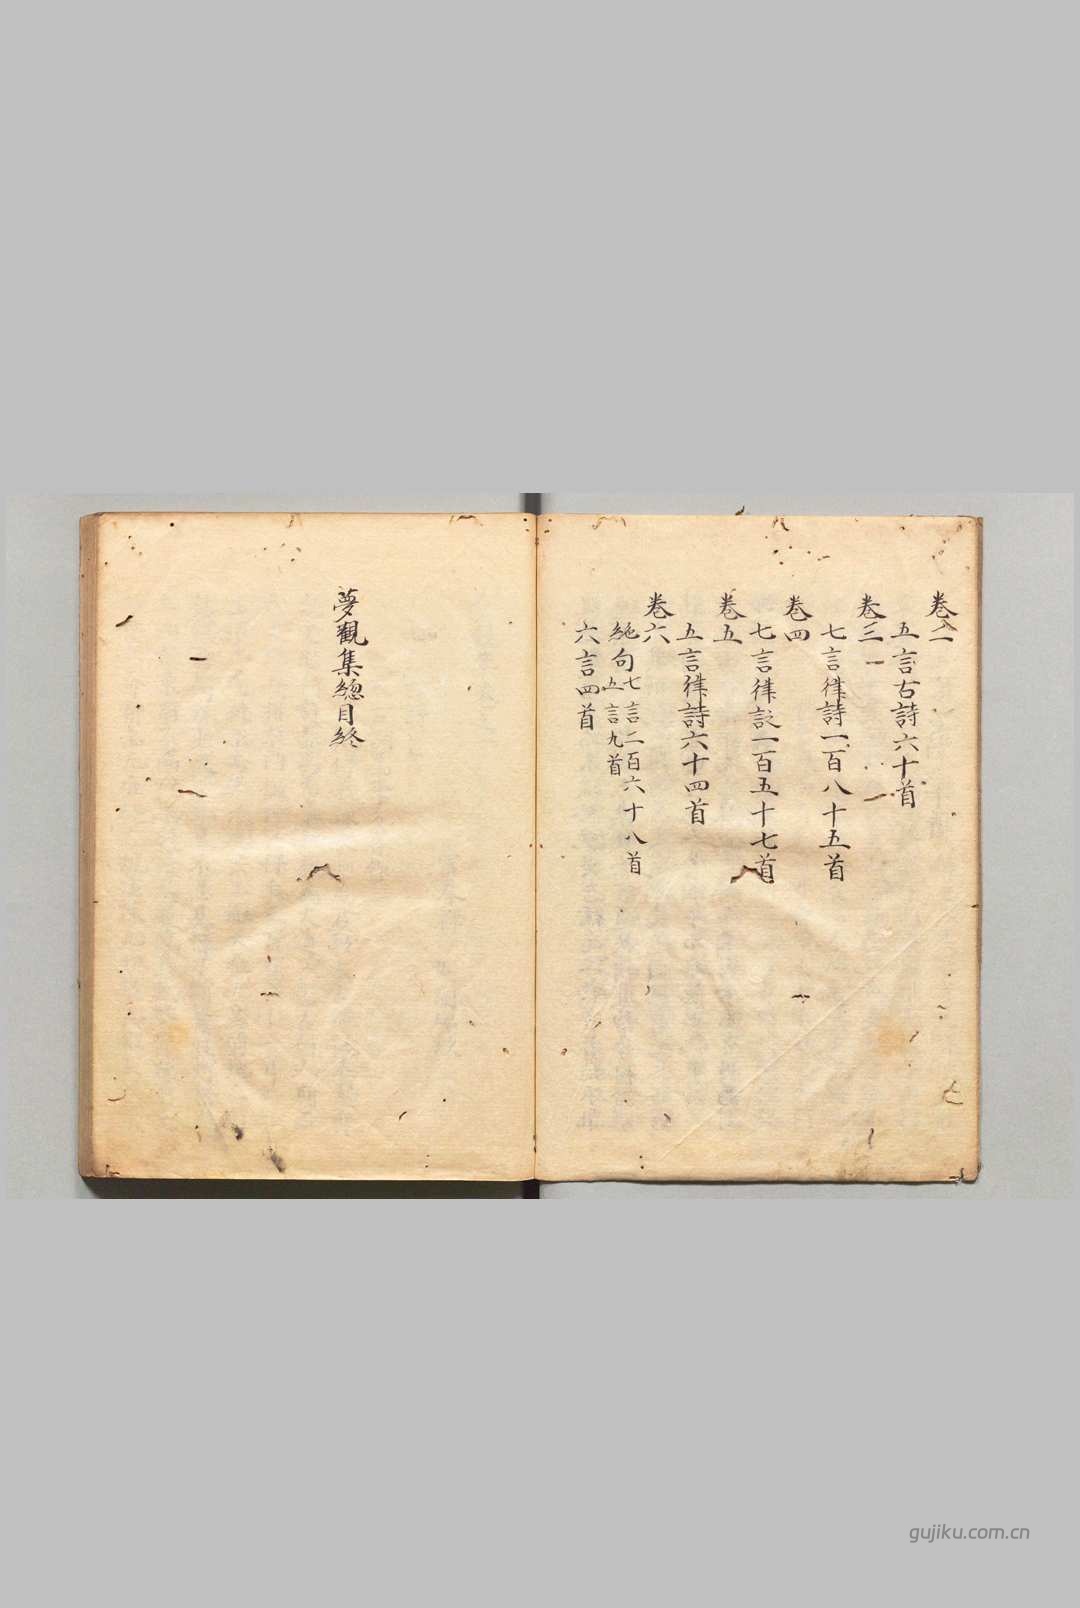 卷二
五言古詩六十首
卷三
七言律詩一百八十五首
卷四
七言律詩一百五十七首
卷五
五言律詩六十四首
卷六
絶句七言二百六十八首
五言九首
六言四首
夢觀集總目終
gujiku.com.cn